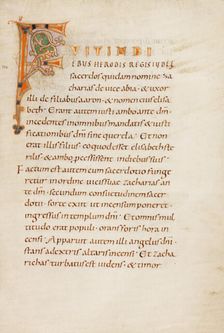 FVIT IN DI
EBUS HERODIS REGIS IUDEE
sacerdos quidam nomine za
charias de vice abia · & uxor
illi de filiabus aaron · & nomen eius elisa
beth · Erant autem iusti ambo ante dm̄ ·
incedentes inomnibus mandatis & ius
tificationibus dn̄i sine querela · Et non
erat illis filius · eo quod esset elisabeth ste
rilis · & ambo processissent indiebus suis ·
Factum est autem cum sacerdotio funge
retur inordine vicis suae zacharias an
te dm̄ · secundum consuetudinem sacer
dotii · sorte exiit ut incensum poneret
ingressus in templum dn̄i · Et omnis mul
titudo · erat populi orans foris hora in
censi · Apparuit autem illi angelus dn̄i ·
stans adextris altaris incensi · Et zacha
rias turbatus est videns · & timor